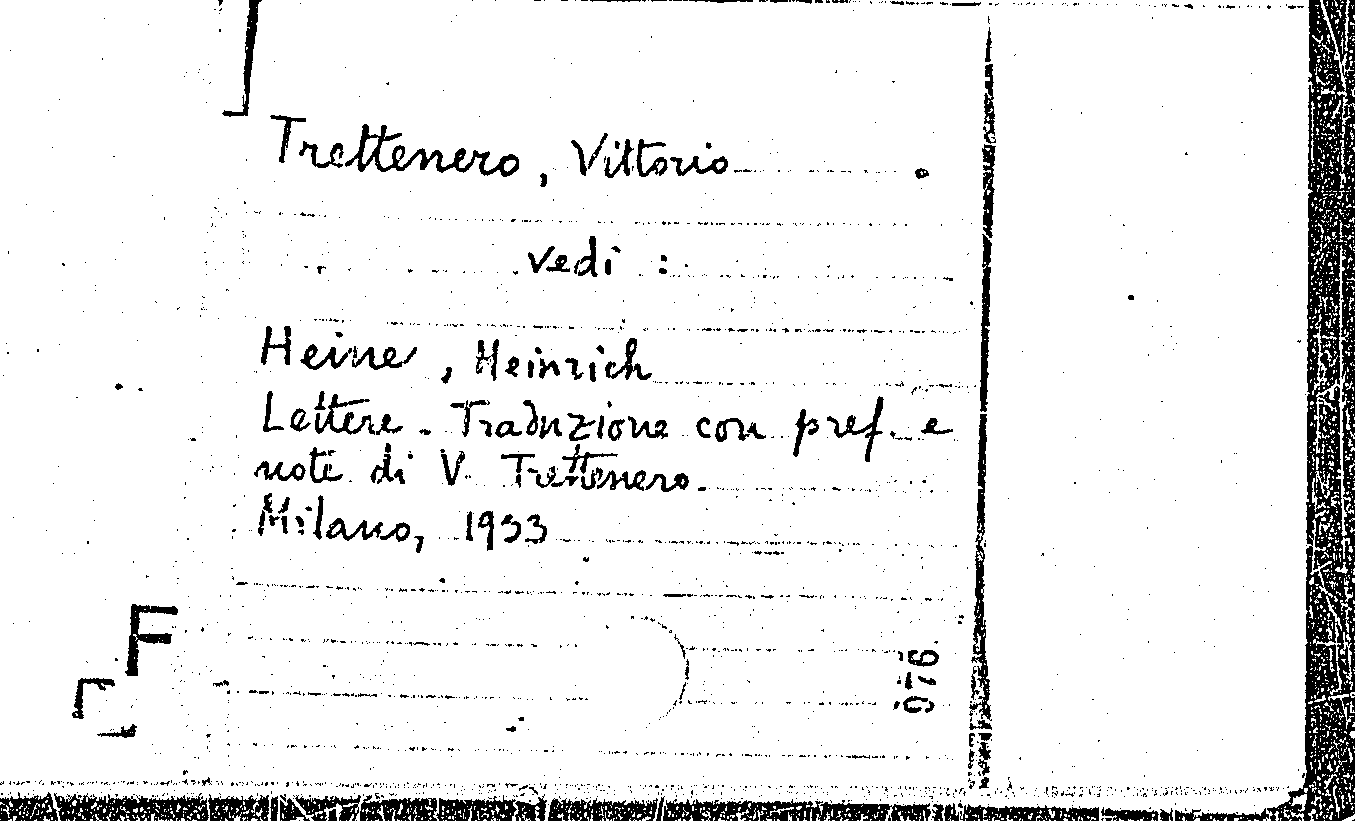 Trettenero, Vittorio
vedi :
Heine, Heinrich
Lettere - Traduzione con pref. e
note di V. Trettenero.
Milano, 1933
F